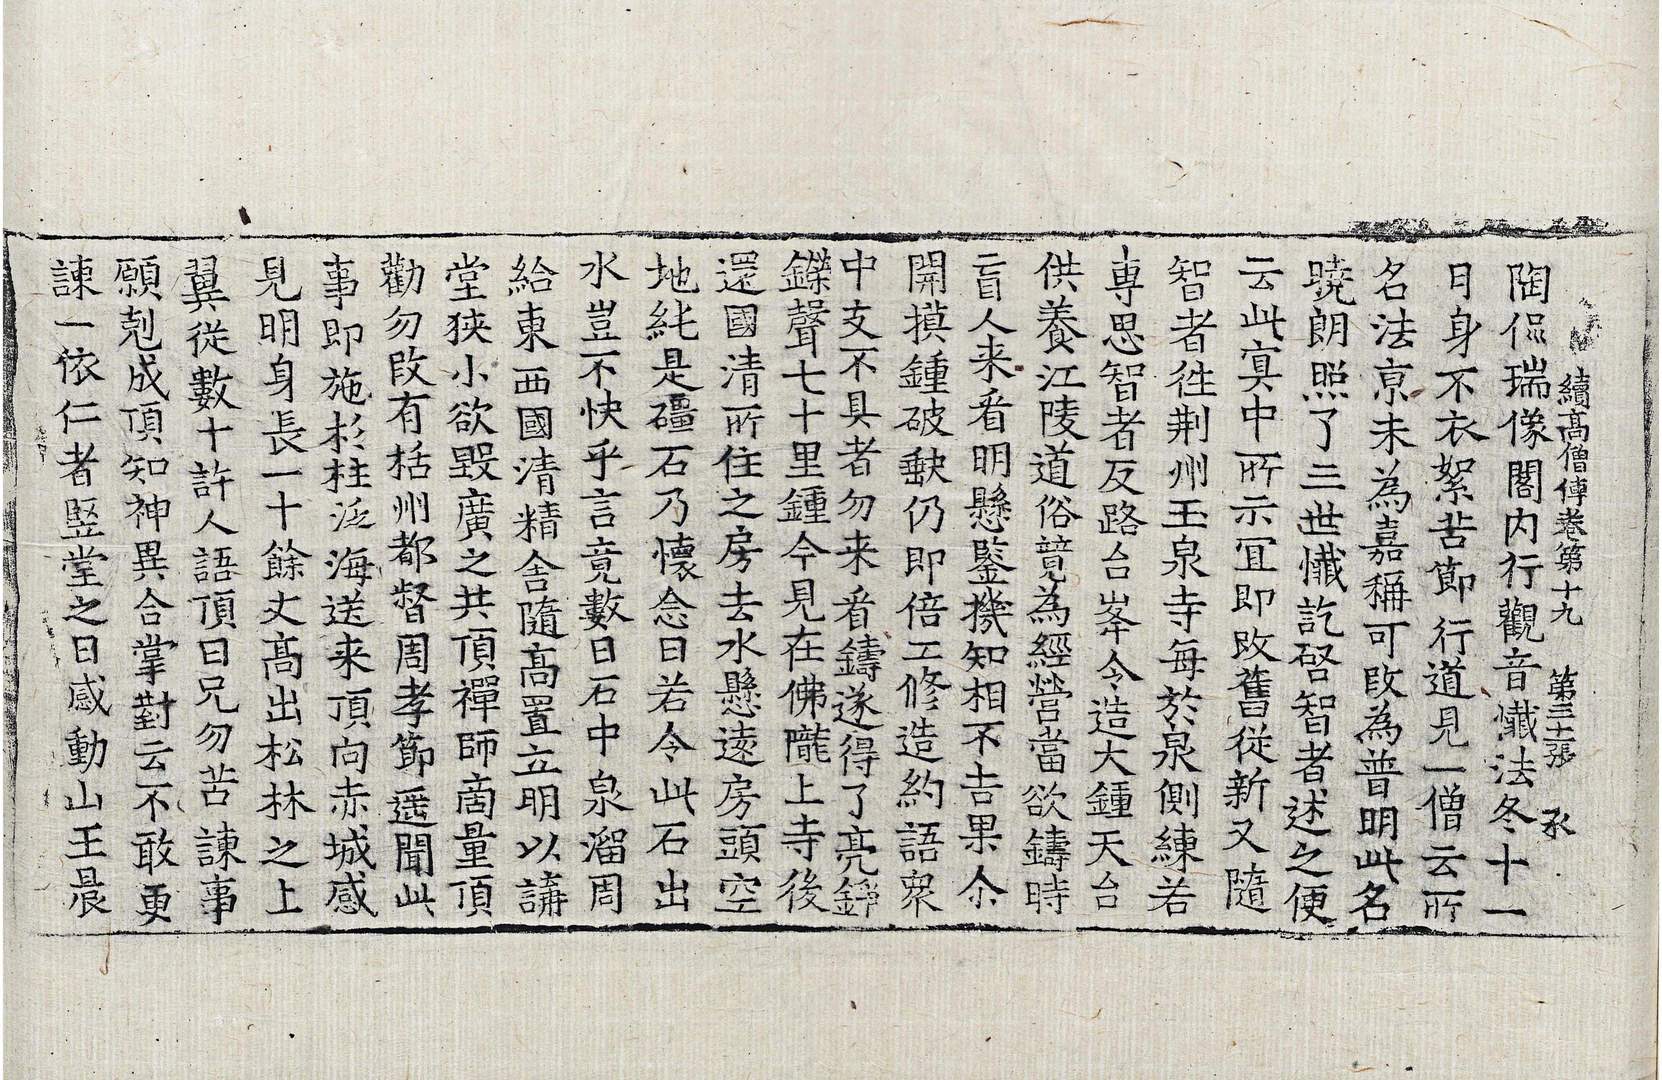 續高僧傳卷第十九 第三十二張 承
陶侃瑞像閣内行觀音懺法冬十一
日身不衣絮苦節行道見一僧云所
名法京未為嘉稱可改為普明此名
曉朗照了三世懺訖啓智者述之便
云此冥中所示冝即改舊從新又隨
智者徃荆州玉泉寺每於泉側練若
專思智者反路台峯令造大鍾天台
供養江陵道俗競為經營當欲鑄時
盲人来看明懸鑒機知相不吉果尒
開摸鍾破缺仍即倍工修造約語衆
中支不具者勿来看鑄遂得了亮錚
鏁聲七十里鍾今見在佛隴上寺後
還國清所住之房去水懸遠房頭空
地純是礓石乃懷念曰若令此石出
水豈不快乎言竟數日石中泉溜周
給東西國清精舍隨高置立明以講
堂狹小欲毀廣之共頂禪師商量頂
勸勿改有栝州都督周孝節遥聞此
事即施杉柱泛海送来頂向赤城感
見明身長一十餘丈高出松林之上
翼從數十許人語頂曰兄勿苦諫事
願剋成頂知神異合掌對云不敢更
諫一依仁者竪堂之日感動山王晨